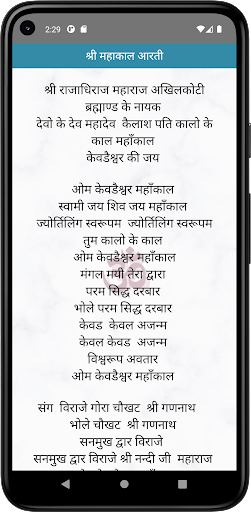 2:29
श्री महाकाल आरती
श्री राजाधिराज महाराज अखिलकोटी
ब्रह्माण्ड के नायक
देवो के देव महादेव कैलाश पति कालो के
काल महाँकाल
केवडैश्वर की जय
ओम केवडैश्वर महाँकाल
स्वामी जय शिव जय महाँकाल
ज्योर्तिलिंग स्वरूपम ज्योर्तिलिंग स्वरूपम
तुम कालो के काल
ओम केवडैश्वर महाँकाल
मंगल मयी तेरा द्वारा
परम सिद्ध दरबार
भोले परम सिद्ध दरबार
केवड केवल अजन्म
केवल केवड अजन्म
विश्वरूप अवतार
ओम केवडैश्वर महाँकाल
संग विराजे गोरा चौखट श्री गणनाथ
भोले चौखट श्री गणनाथ
सनमुख द्वार विराजे
सनमुख द्वार विराजे श्री नन्दी जी महाराज